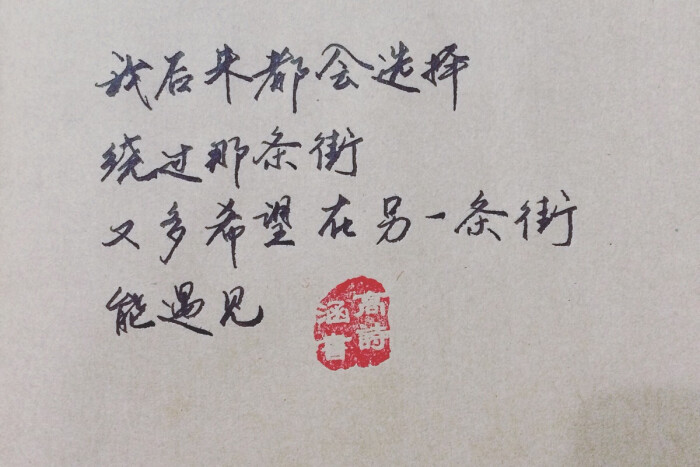 我后来都会选择
绕过那条街
又多希望在另一条街
能遇见
高詩
涵書